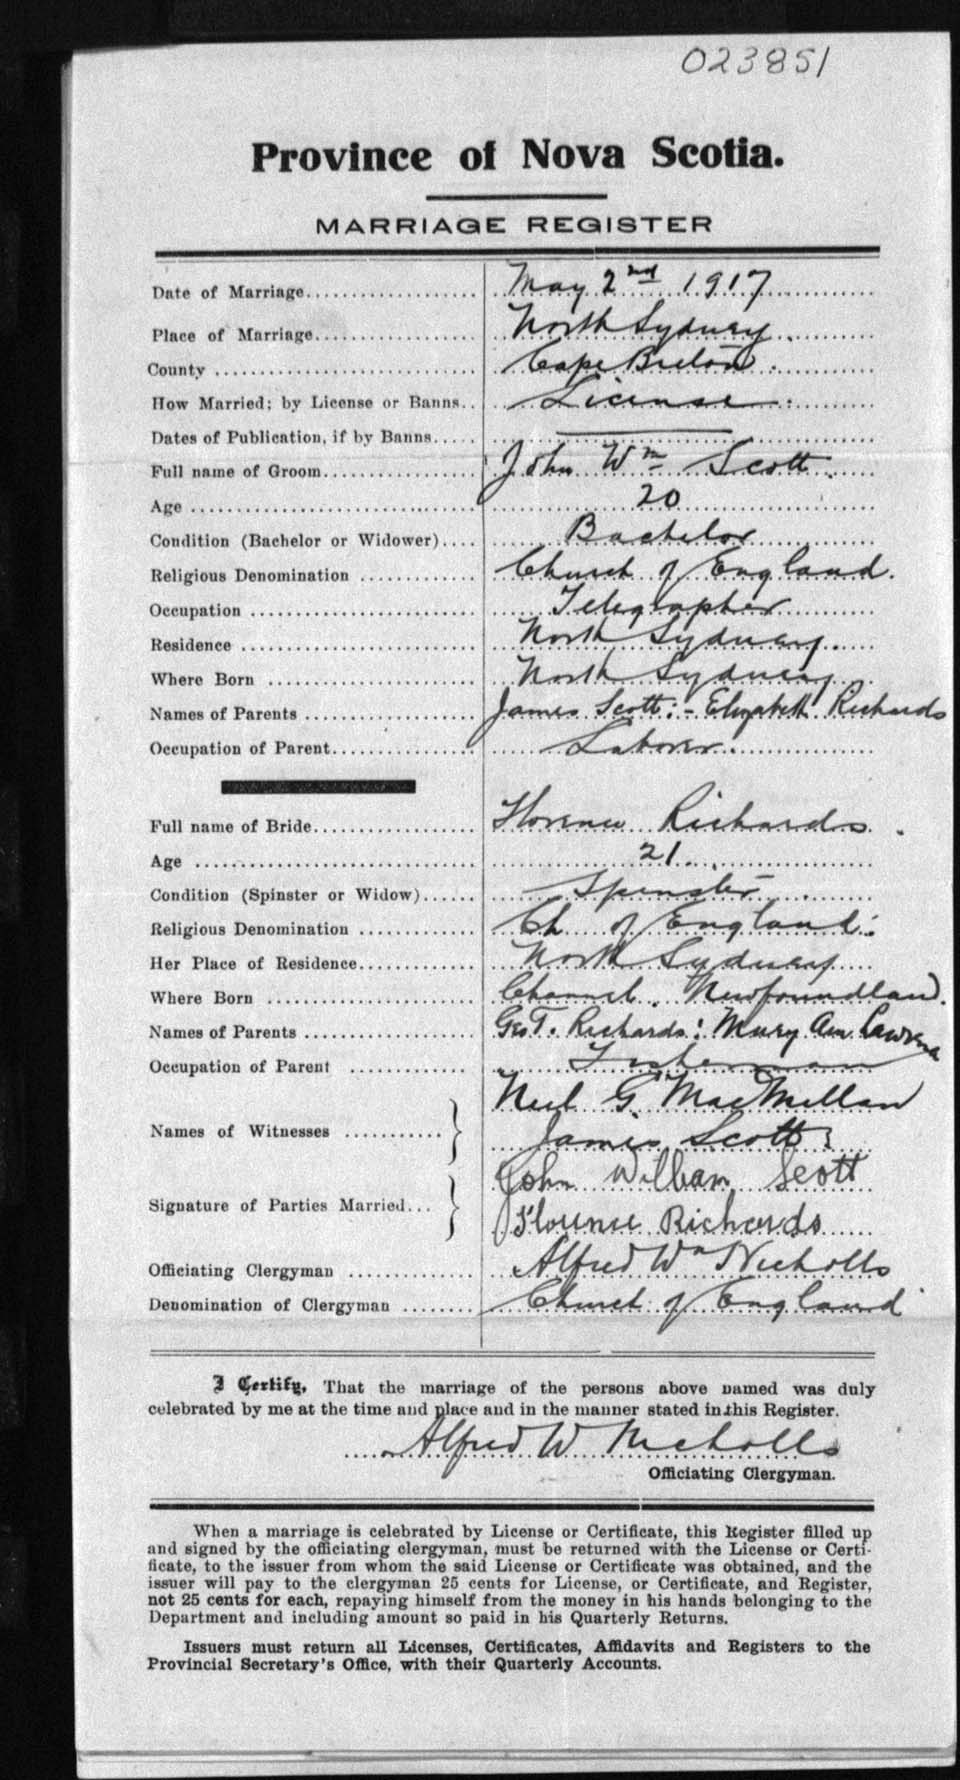 023851
Province of Nova Scotia.
MARRIAGE REGISTER
Date of Marriage May 2nd 1917
Place of Marriage North Sydney.
County Cape Breton.
How Married; by License or Banns License.
Dates of Publication, if by Banns
Full name of Groom John Wm Scott.
Age 20
Condition (Bachelor or Widower) Bachelor
Religious Denomination Church of England.
Occupation Telegrapher
Residence North Sydney.
Where Born North Sydney
Names of Parents James Scott:- Elizabeth Richards
Occupation of Parent Laborer.
Full name of Bride Florence Richards.
Age 21.
Condition (Spinster or Widow) Spinster
Religious Denomination Ch of England.
Her Place of Residence North Sydney
Where Born Channel. Newfoundland.
Names of Parents Geo T. Richards: Mary Ann
Occupation of Parent Fisherman
Names of Witnesses Neil G. MacMillan
James Scott
Signature of Parties Married John William Scott
Florence Richards
Officiating Clergyman Alfred Wm Nicholls
Denomination of Clergyman Church of England
I Certify, That the marriage of the persons above named was duly
celebrated by me at the time and place and in the manner stated in this Register.
Alfred W Nicholls
Officiating Clergyman.
When a marriage is celebrated by License or Certificate, this Register filled up
and signed by the officiating clergyman, must be returned with the License or Certi-
ficate, to the issuer from whom the said License or Certificate was obtained, and the
issuer will pay to the clergyman 25 cents for License, or Certificate, and Register,
not 25 cents for each, repaying himself from the money in his hands belonging to the
Department and including amount so paid in his Quarterly Returns.
Issuers must return all Licenses, Certificates, Affidavits and Registers to the
Provincial Secretary's Office, with their Quarterly Accounts.